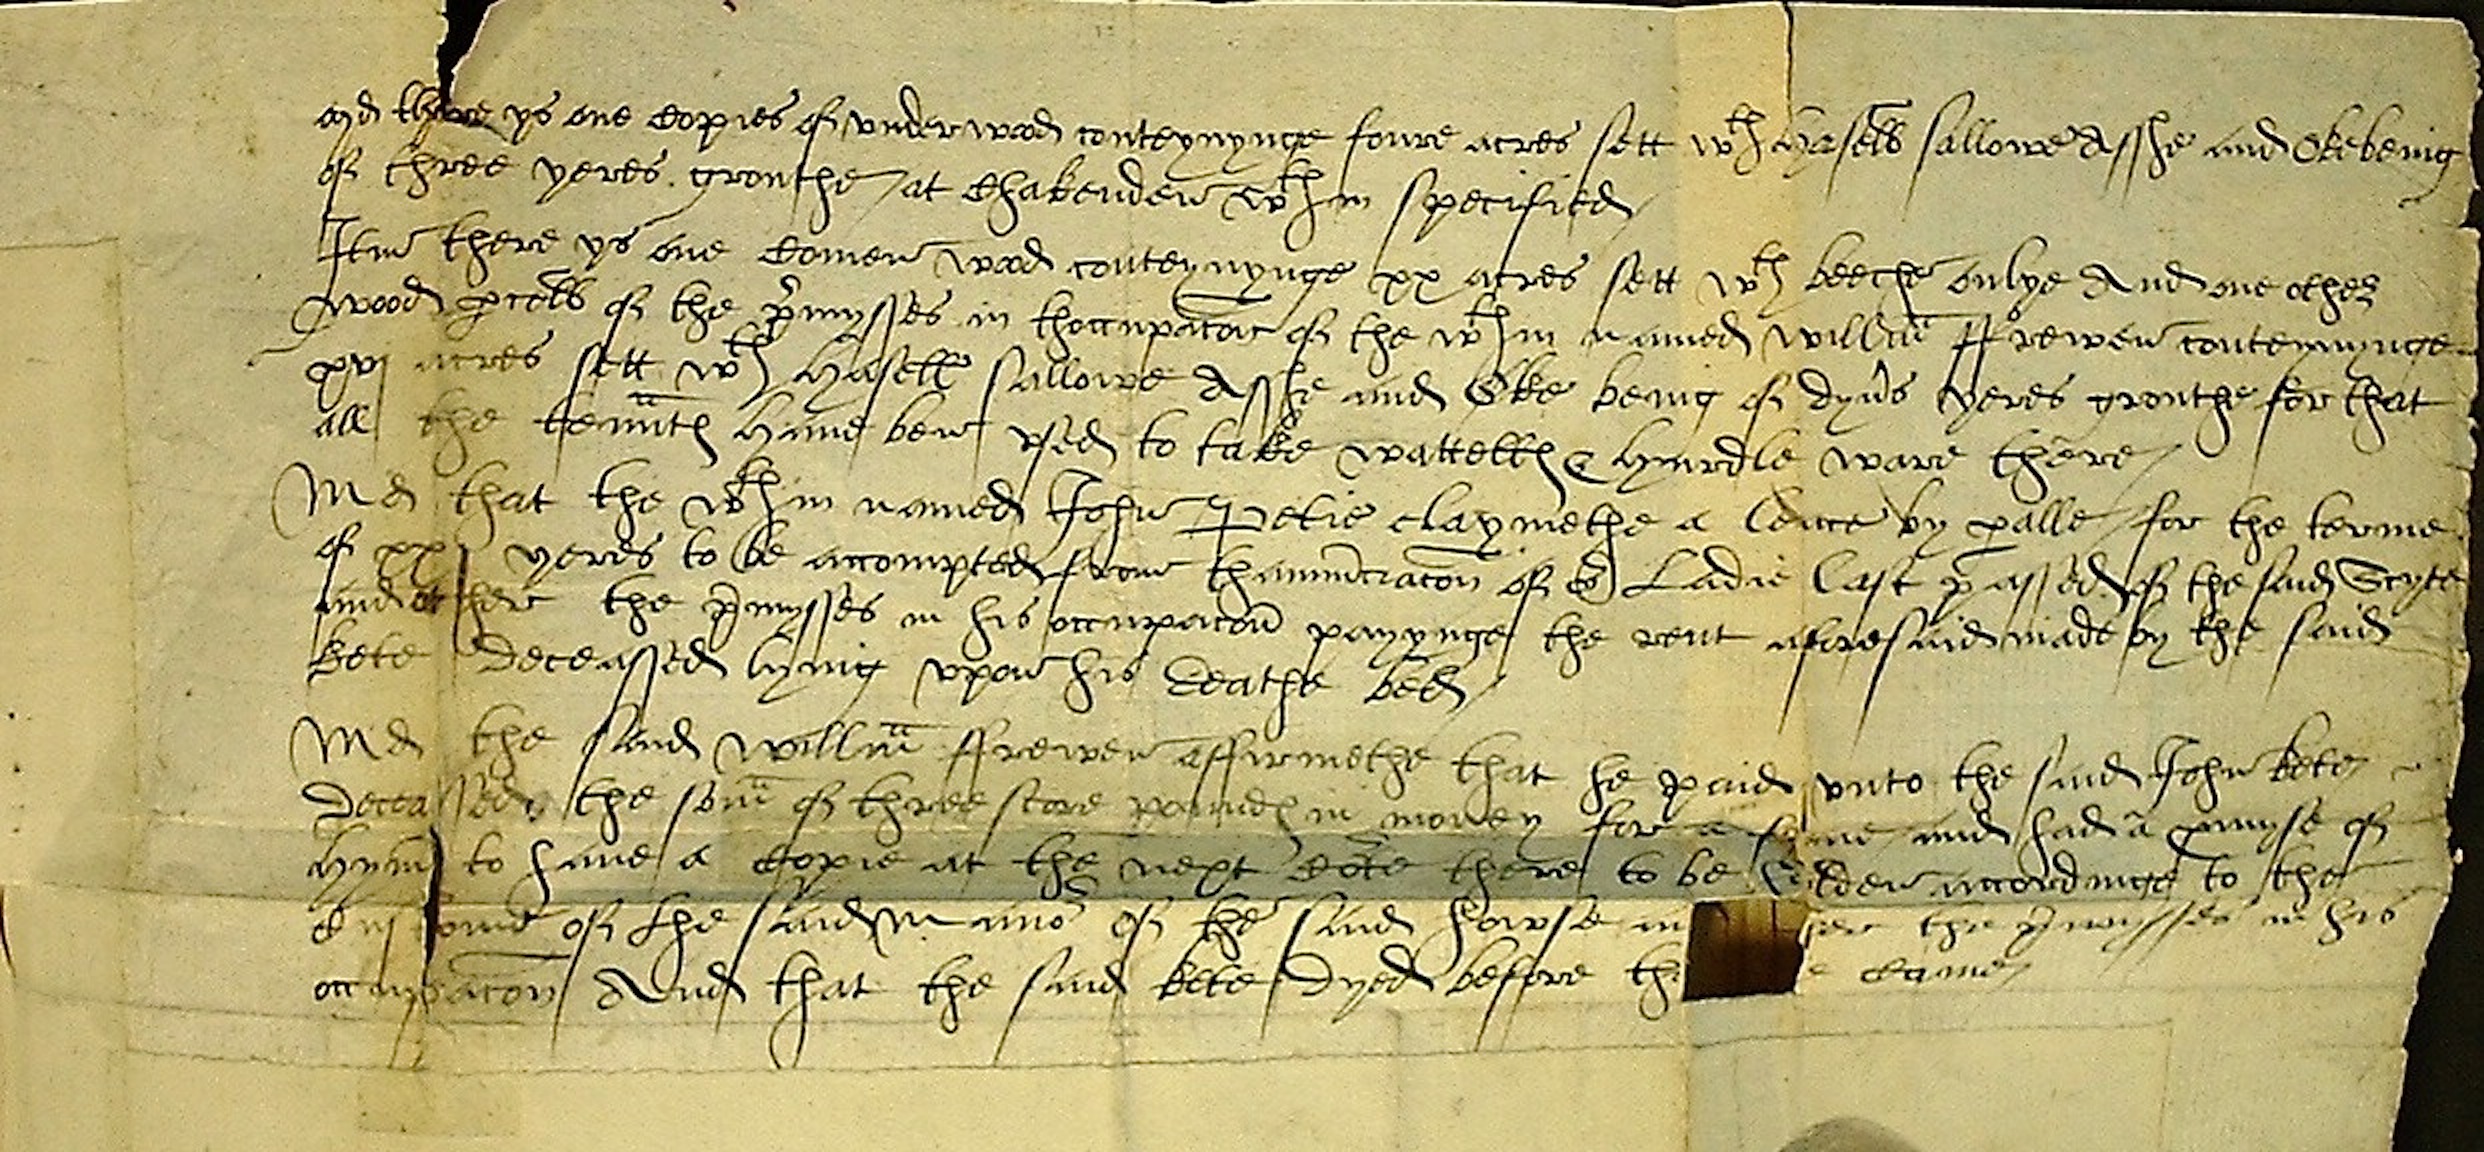 and there ys one Copies of underwood conteynynge foure acres sett wth hasells sallowe Asshe and Oke beinig
of three yeres growthe at Chakenden wthin specified
Itm there ys one Comen wood conteynynge xx acres sett wth beeche onlye And one other
wood pcell of the pmysses in thoccupacon of the wthin named Willm ffrewen conteynynge
xvj acres sett wth hasell sallowe Asshe and Oke being of dyvs yeres growthe for that
all the tennts have ben used to take wattells & hurdle ware there
Md that the wthin named John Petie claymethe a leace by palle for the terme
of xxj yeres to be accompted frome thannunciacon of or Ladie last passed of the said Scyte
and other the pmysses in his occupacon payynge the rent aforesaid made by the said
kete deceassed lying upon his deathe bed
Md the said Willm ffrewen affirmethe that he paid unto the said John kete
deceassed the some of three score pounds in money for a fyne and had a pmyse of
hym to have a Copie at the next Cote there to be holden accordinge to the
custome of the said Mano of the said howse an the pmysses in his
occupacon And that the said kete Dyed before th came